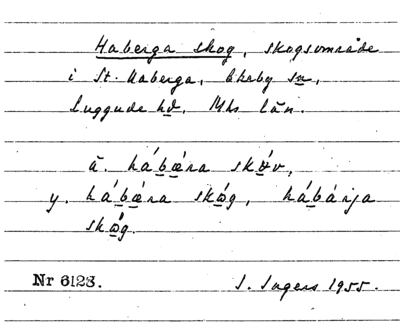 Haberga skog, skogsområde
i St. Haberga, Ekeby sn,
Luggude hd, Mhs län.
ä. hábæ̱ra skǿv,
y. hábæ̱ra skǿg, hábárja
skǿg.
Nr 6128. I. Ingers 1955.